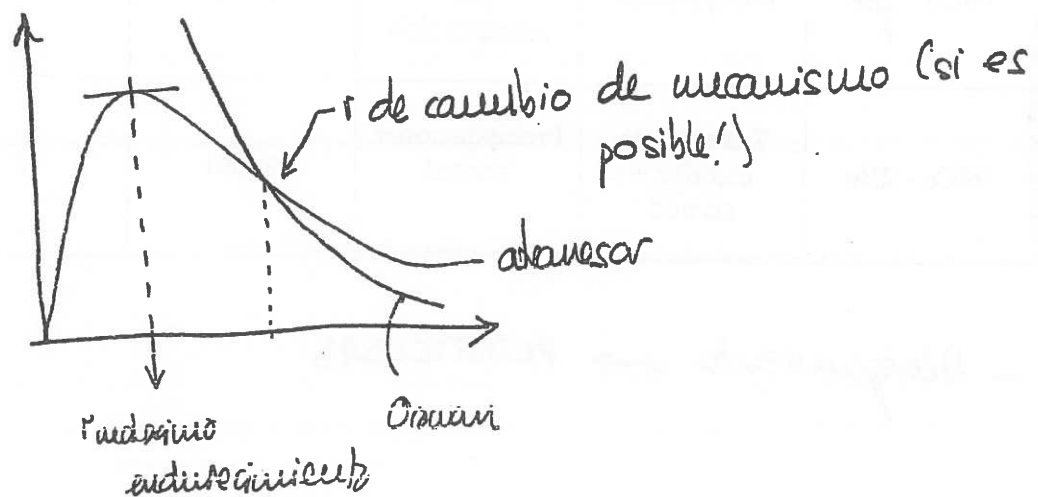 r de cambio de mecanismo (si es
posible!)
atravesar
Orowan
r máximo
endurecimiento